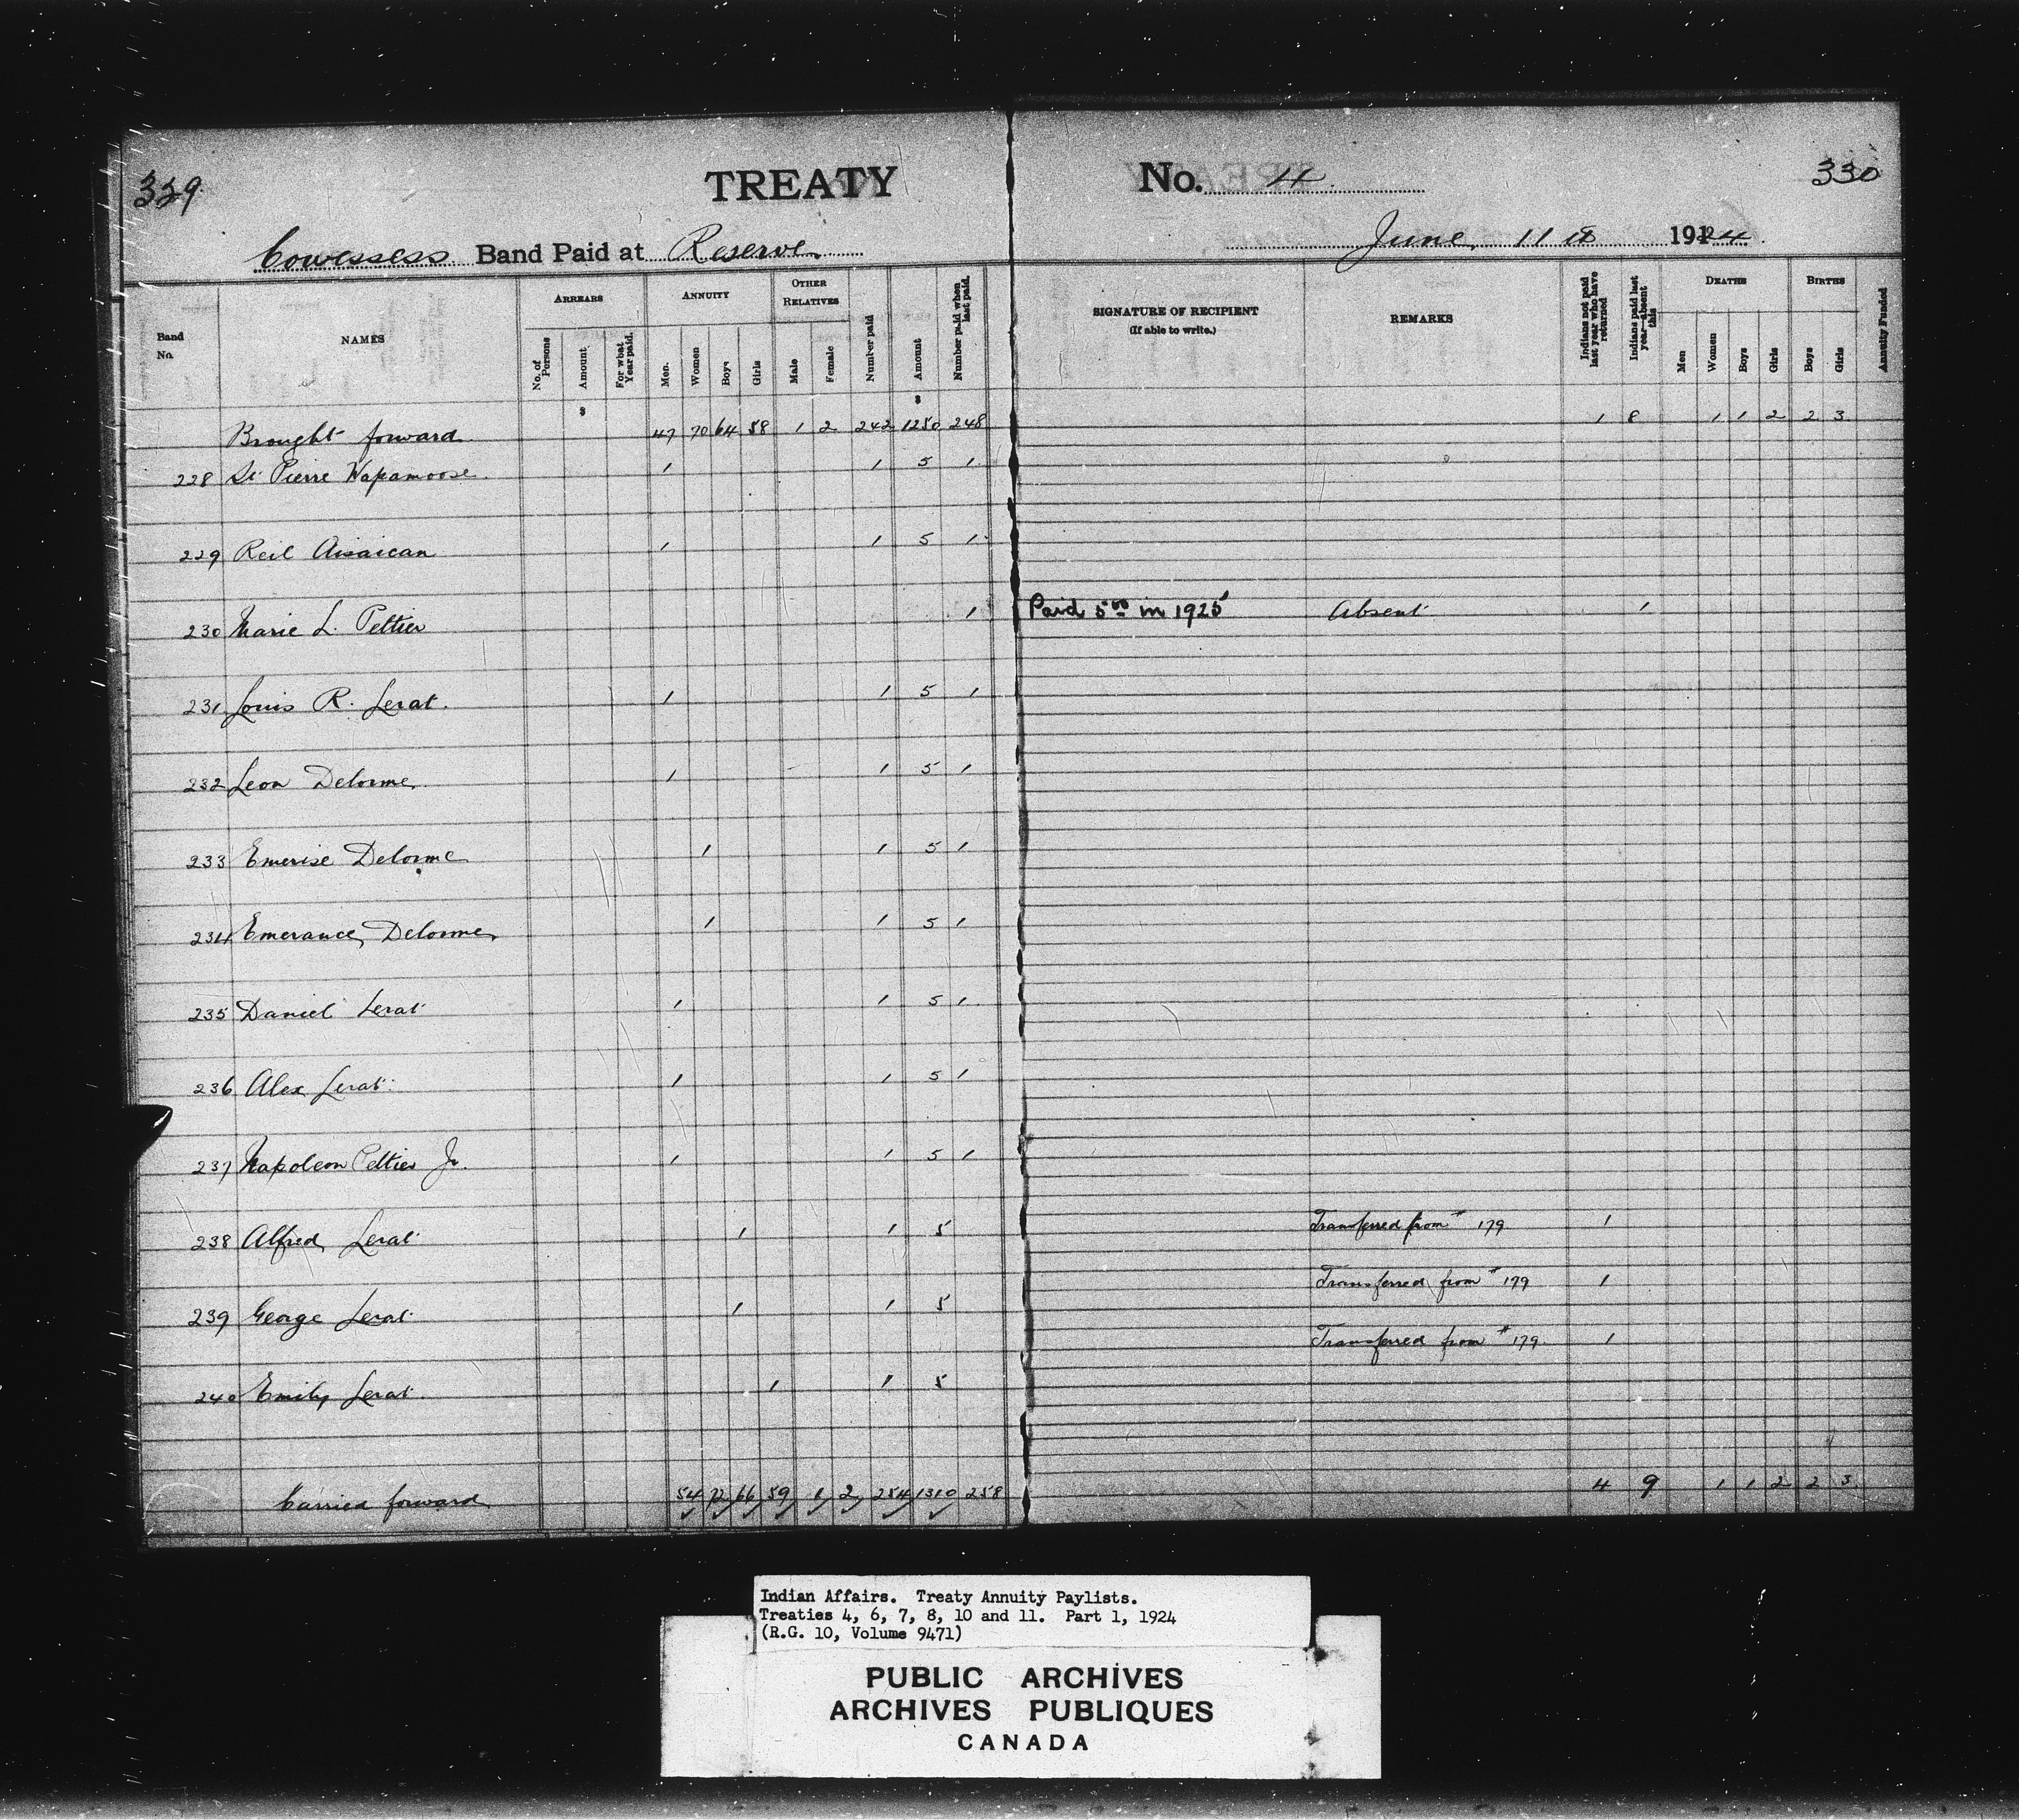 329 TREATY No. 4 330
Cowessess Band Paid at Reserve June 11th 1924
Band No. NAMES ARREARS No. of Persons Amount For what Year paid. ANNUITY Men. Women Boys Girls OTHER RELATIVES Male Female Number paid Amount Number paid when last paid. SIGNATURE OF RECIPIENT (If able to write.) REMARKS Indians not paid last year who have returned Indians paid last year—absent this DEATHS Men Women Boys Girls BIRTHS Boys Girls Annuity Funded
$ $
Brought forward 47 70 64 58 1 2 242 1250 248 1 8 1 1 2 2 3
228 St Pierre Wapamoose 1 1 5 1
229 Reil Aisaican 1 1 5 1
230 Marie L. Peltier 1 Paid 5.00 in 1925 Absent 1
231 Louis R. Lerat. 1 1 5 1
232 Leon Delorme 1 1 5 1
233 Emerise Delorme 1 1 5 1
234 Emerance Delorme 1 1 5 1
235 Daniel Lerat 1 1 5 1
236 Alex Lerat 1 1 5 1
237 Napoleon Peltier Jr. 1 1 5 1
238 Alfred Lerat 1 1 5 Transferred from # 179 1
239 George Lerat 1 1 5 Transferred from # 179 1
240 Emily Lerat 1 1 5 Transferred from # 179 1
Carried forward 54 72 66 59 1 2 254 1310 258 4 9 1 1 2 2 3
Indian Affairs. Treaty Annuity Paylists.
Treaties 4, 6, 7, 8, 10 and 11. Part 1, 1924
(R.G. 10, Volume 9471)
PUBLIC ARCHIVES
ARCHIVES PUBLIQUES
CANADA